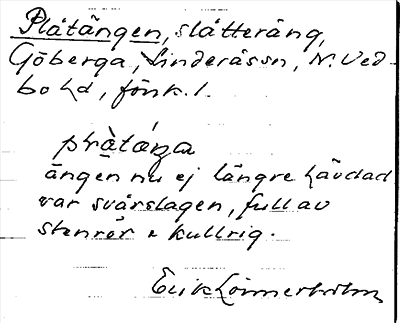 Plåtängen, slåtteräng,
Göberga, Linderåssn, N. Ved-
bo hd, Jönk. l.
ängen nu ej längre hävdad
var svårslagen, full av
stenrör & kullrig.
Erik Lönnerholm